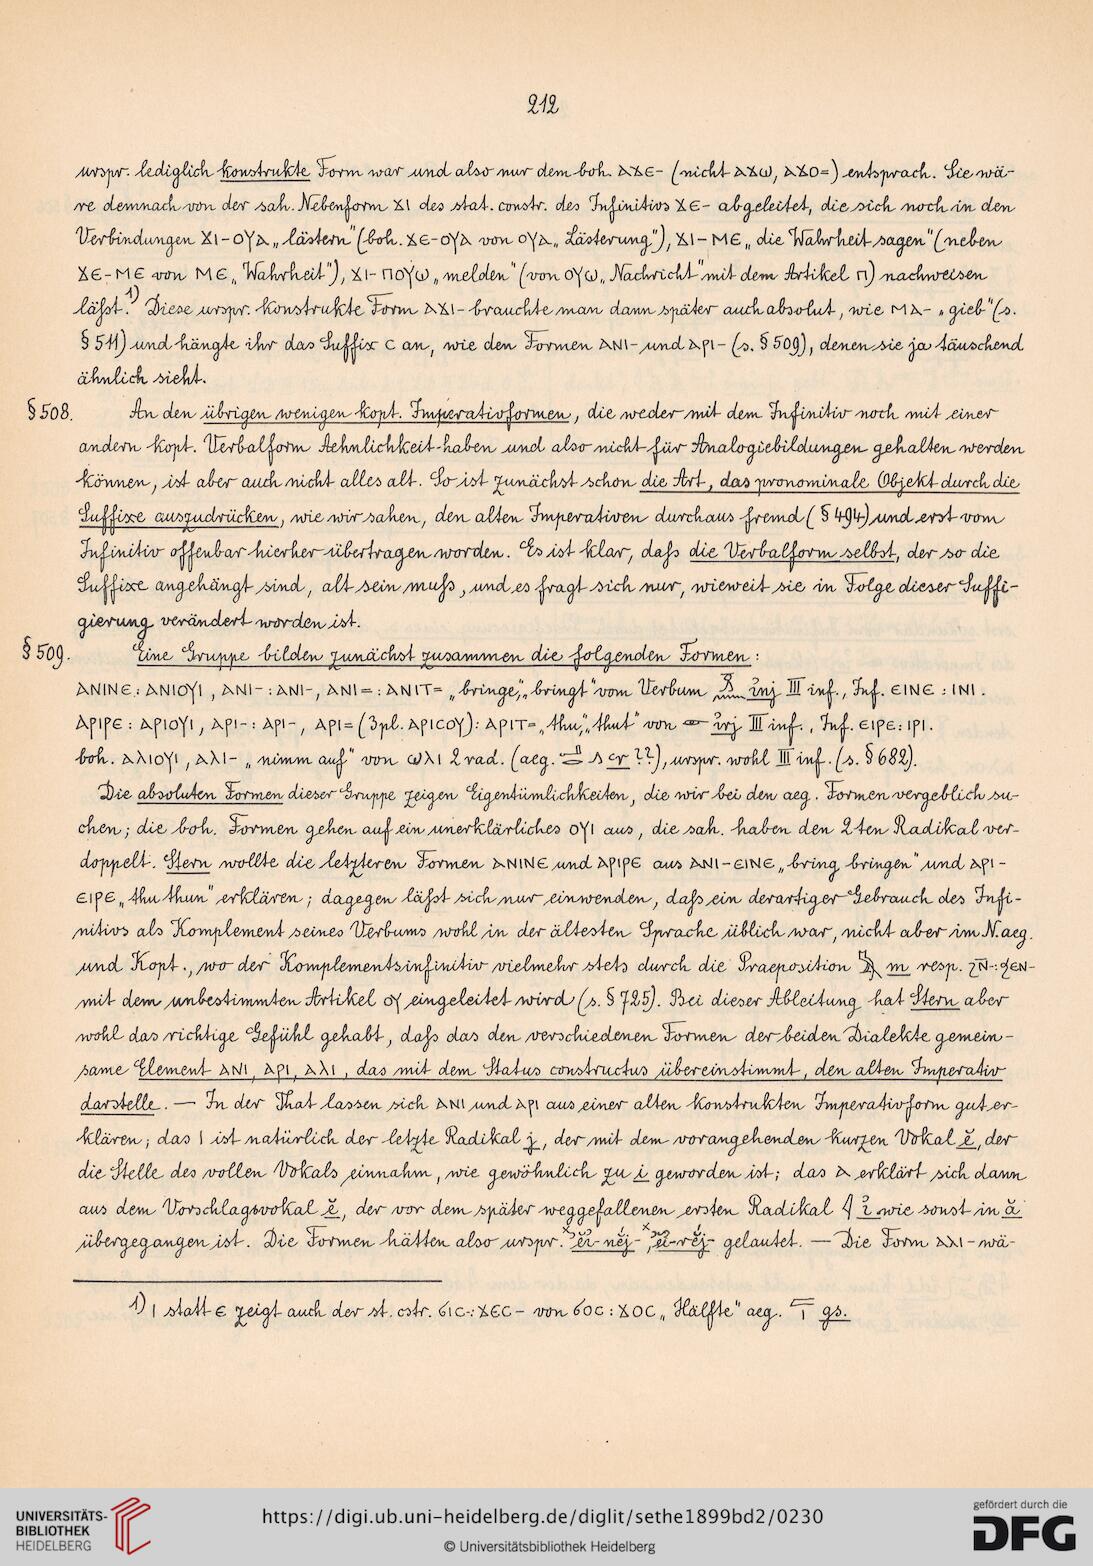 212
urspr. lediglich konstrukte Form war und also nur dem boh. ⲁϫⲉ- (nicht ⲁϫⲱ, ⲁϫⲟ=) entsprach. Sie wä-
re demnach von der sah. Nebenform ϫⲓ des stat. constr. des Infinitivs ϫⲉ- abgeleitet, die sich noch in den
Verbindungen ϫⲓ-ⲟⲩⲁ „lästern" (boh. ϫⲉ-ⲟⲩⲁ von ⲟⲩⲁ „Lästerung"), ϫⲓ-ⲙⲉ „die Wahrheit sagen" (neben
ϫⲉ-ⲙⲉ von ⲙⲉ „Wahrheit"), ϫⲓ-ⲡⲟⲩⲱ „melden" (von ⲟⲩⲱ „Nachricht" mit dem Artikel ⲡ) nachweisen
läßt.¹) Diese urspr. konstrukte Form ⲁϫⲓ- brauchte man dann später auch absolut, wie ⲙⲁ- „gieb" (s.
§ 511) und hängte ihr das Suffix ⲥ an, wie den Formen ⲁⲛⲓ- und ⲁⲣⲓ- (s. § 509), denen sie ja täuschend
ähnlich sieht.
§ 508. An den übrigen wenigen kopt. Imperativformen, die weder mit dem Infinitiv noch mit einer
andern kopt. Verbalform Aehnlichkeit haben und also nicht für Analogiebildungen gehalten werden
können, ist aber auch nicht alles alt. So ist zunächst schon die Art, das pronominale Objekt durch die
Suffixe auszudrücken, wie wir sahen, den alten Imperativen durchaus fremd (§ 494) und erst vom
Infinitiv offenbar hierher übertragen worden. Es ist klar, daß die Verbalform selbst, der so die
Suffixe angehängt sind, alt sein muß, und es fragt sich nur, wieweit sie in Folge dieser Suffi-
gierung verändert worden ist.
§ 509. Eine Gruppe bilden zunächst zusammen die folgenden Formen:
ⲁⲛⲓⲛⲉ : ⲁⲛⲓⲟⲩⲓ, ⲁⲛⲓ- : ⲁⲛⲓ-, ⲁⲛⲓ= : ⲁⲛⲓⲧ= „bringe", „bringt" vom Verbum 𓏎𓈖 ı͗nj III inf., Inf. ⲉⲓⲛⲉ : ⲓⲛⲓ.
ⲁⲣⲓⲣⲉ : ⲁⲣⲓⲟⲩⲓ, ⲁⲣⲓ- : ⲁⲣⲓ-, ⲁⲣⲓ= (3pl. ⲁⲣⲓⲥⲟⲩ) : ⲁⲣⲓⲧ= „thu", „thut" von 𓁹 ı͗rj III inf., Inf. ⲉⲓⲣⲉ : ⲓⲣⲓ.
boh. ⲁⲗⲓⲟⲩⲓ, ⲁⲗⲓ- „nimm auf" von ⲱⲗⲓ 2 rad. (aeg. ꜥr ??), urspr. wohl III inf. (s. § 682).
Die absoluten Formen dieser Gruppe zeigen Eigentümlichkeiten, die wir bei den aeg. Formen vergeblich su-
chen; die boh. Formen gehen auf ein unerklärliches ⲟⲩⲓ aus, die sah. haben den 2ten Radikal ver-
doppelt. Stern wollte die letzteren Formen ⲁⲛⲓⲛⲉ und ⲁⲣⲓⲣⲉ aus ⲁⲛⲓ-ⲉⲓⲛⲉ „bring bringen" und ⲁⲣⲓ-
ⲉⲓⲣⲉ „thu thun" erklären; dagegen läßt sich nur einwenden, daß ein derartiger Gebrauch des Infi-
nitivs als Komplement seines Verbums wohl in der ältesten Sprache üblich war, nicht aber im N.aeg.
und Kopt., wo der Komplementsinfinitiv vielmehr stets durch die Praeposition 𓅓 m resp. ϩⲛ̄- : ϧⲉⲛ-
mit dem unbestimmten Artikel ⲟⲩ eingeleitet wird (s. § 725). Bei dieser Ableitung hat Stern aber
wohl das richtige Gefühl gehabt, daß das den verschiedenen Formen der beiden Dialekte gemein-
same Element ⲁⲛⲓ, ⲁⲣⲓ, ⲁⲗⲓ, das mit dem Status constructus übereinstimmt, den alten Imperativ
darstelle. — In der That lassen sich ⲁⲛⲓ und ⲁⲣⲓ aus einer alten konstrukten Imperativform gut er-
klären; das ⲓ ist natürlich der letzte Radikal j, der mit dem vorangehenden kurzen Vokal ĕ, der
die Stelle des vollen Vokals einnahm, wie gewöhnlich zu i geworden ist; das ⲁ erklärt sich dann
aus dem Vorschlagsvokal ĕ, der vor dem später weggefallenen ersten Radikal 𓇋 ı͗ wie sonst in ă
übergegangen ist. Die Formen hätten also urspr. gelautet. — Die Form ⲁⲗⲓ- wä-
1) ⲓ statt ⲉ zeigt auch der st. cstr. ϭⲓⲥ- : ϫⲉⲥ- von ϭⲟⲥ : ϫⲟⲥ „Hälfte" aeg. gs.
UNIVERSITÄTS-
BIBLIOTHEK
HEIDELBERG
https://digi.ub.uni-heidelberg.de/diglit/sethe1899bd2/0230
© Universitätsbibliothek Heidelberg
gefördert durch die
DFG